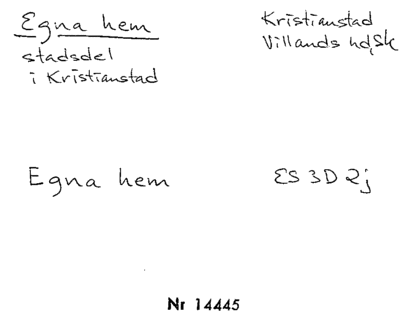 Egna hem
stadsdel
i Kristianstad
Kristianstad
Villands hd, Sk
Egna hem
ES 3D 2j
Nr 14445